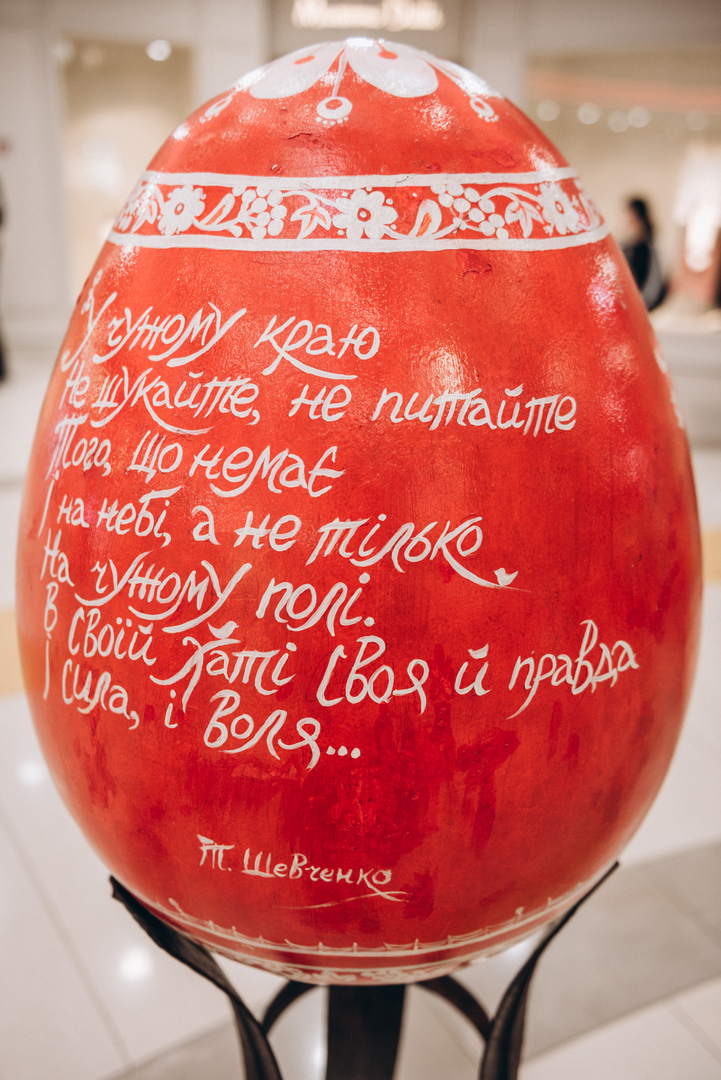 У чужому краю
Не шукайте, не питайте
Того, що немає
І на небі, а не тілько
На чужому полі.
В своїй хаті своя й правда
І сила, і воля...
Т. Шевченко